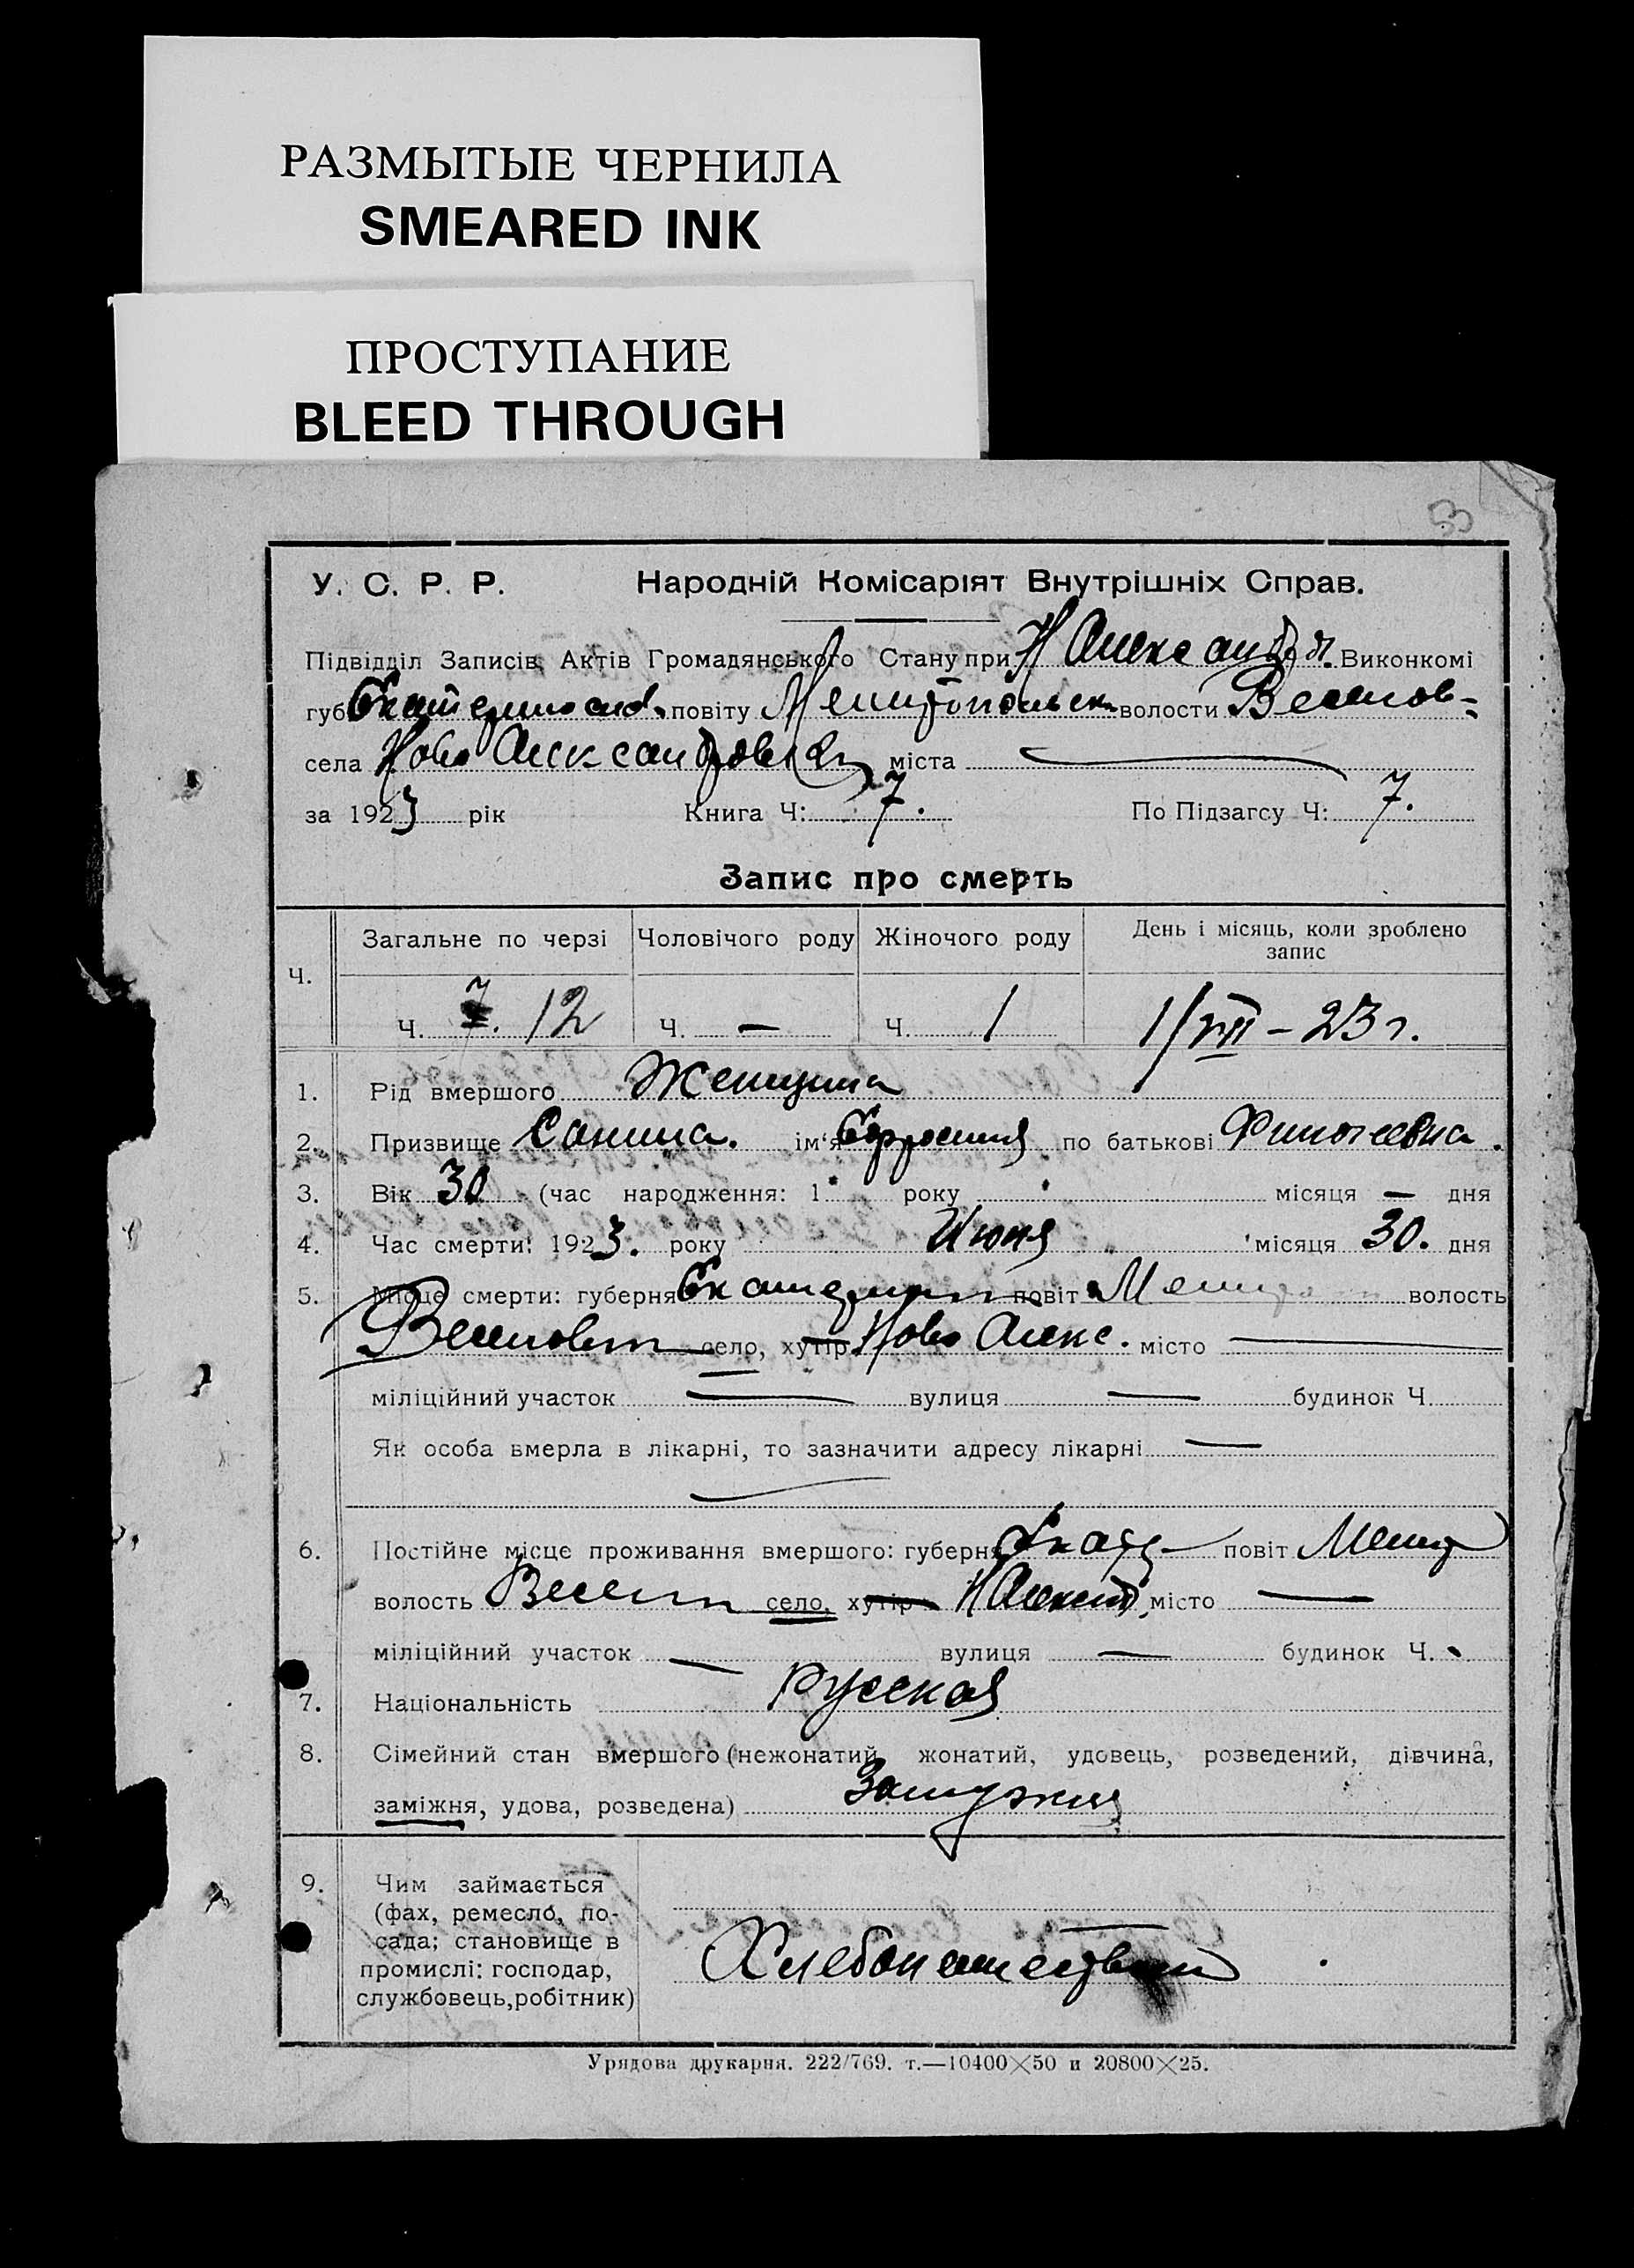 РАЗМЫТЫЕ ЧЕРНИЛА
SMEARED INK
ПРОСТУПАНИЕ
BLEED THROUGH
53
У. С. Р. Р. Народній Комісаріят Внутрішніх Справ.
Підвідділ Записів Актів Громадянського Стану при Н Александр. Виконкомі
губ Екатеринослав. повіту Мелитопольск. волости Веселов-
села Ново Александровки міста —
за 1923 рік Книга Ч: 7. По Підзагсу Ч: 7.
Запис про смерть
Ч. Загальне по черзі Чоловічого роду Жіночого роду День і місяць, коли зроблено запис
Ч. 7. 12 Ч. — Ч. 1 1/VII – 23 г.
1. Рід вмершого Женщина
2. Призвище Санина. ім‘я Ефросиния по батькові
3. Вік 30 (час народження: 1 року місяця — дня
4. Час смерти: 1923. року Июня місяця 30. дня
5. Місце смерти: губерня Екатерин повіт Мелит волость
Веселовск село, хутір Ново Алекс. місто —
міліційний участок — вулиця — будинок Ч.
Як особа вмерла в лікарні, то зазначити адресу лікарні —
—
6. Постійне місце проживання вмершого: губерня Екат повіт Мелит
волость Весел село, хутір Н Алекс місто —
міліційний участок — вулиця — будинок Ч.
7. Національність Русская
8. Сімейний стан вмершого (нежонатий, жонатий, удовець, розведений, дівчина,
заміжня, удова, розведена) Замужняя
9. Чим займається
(фах, ремесло, по-
сада; становище в
промислі: господар,
службовець, робітник)
Хлебопашеством
Урядова друкарня. 222/769. т.—10400×50 и 20800×25.